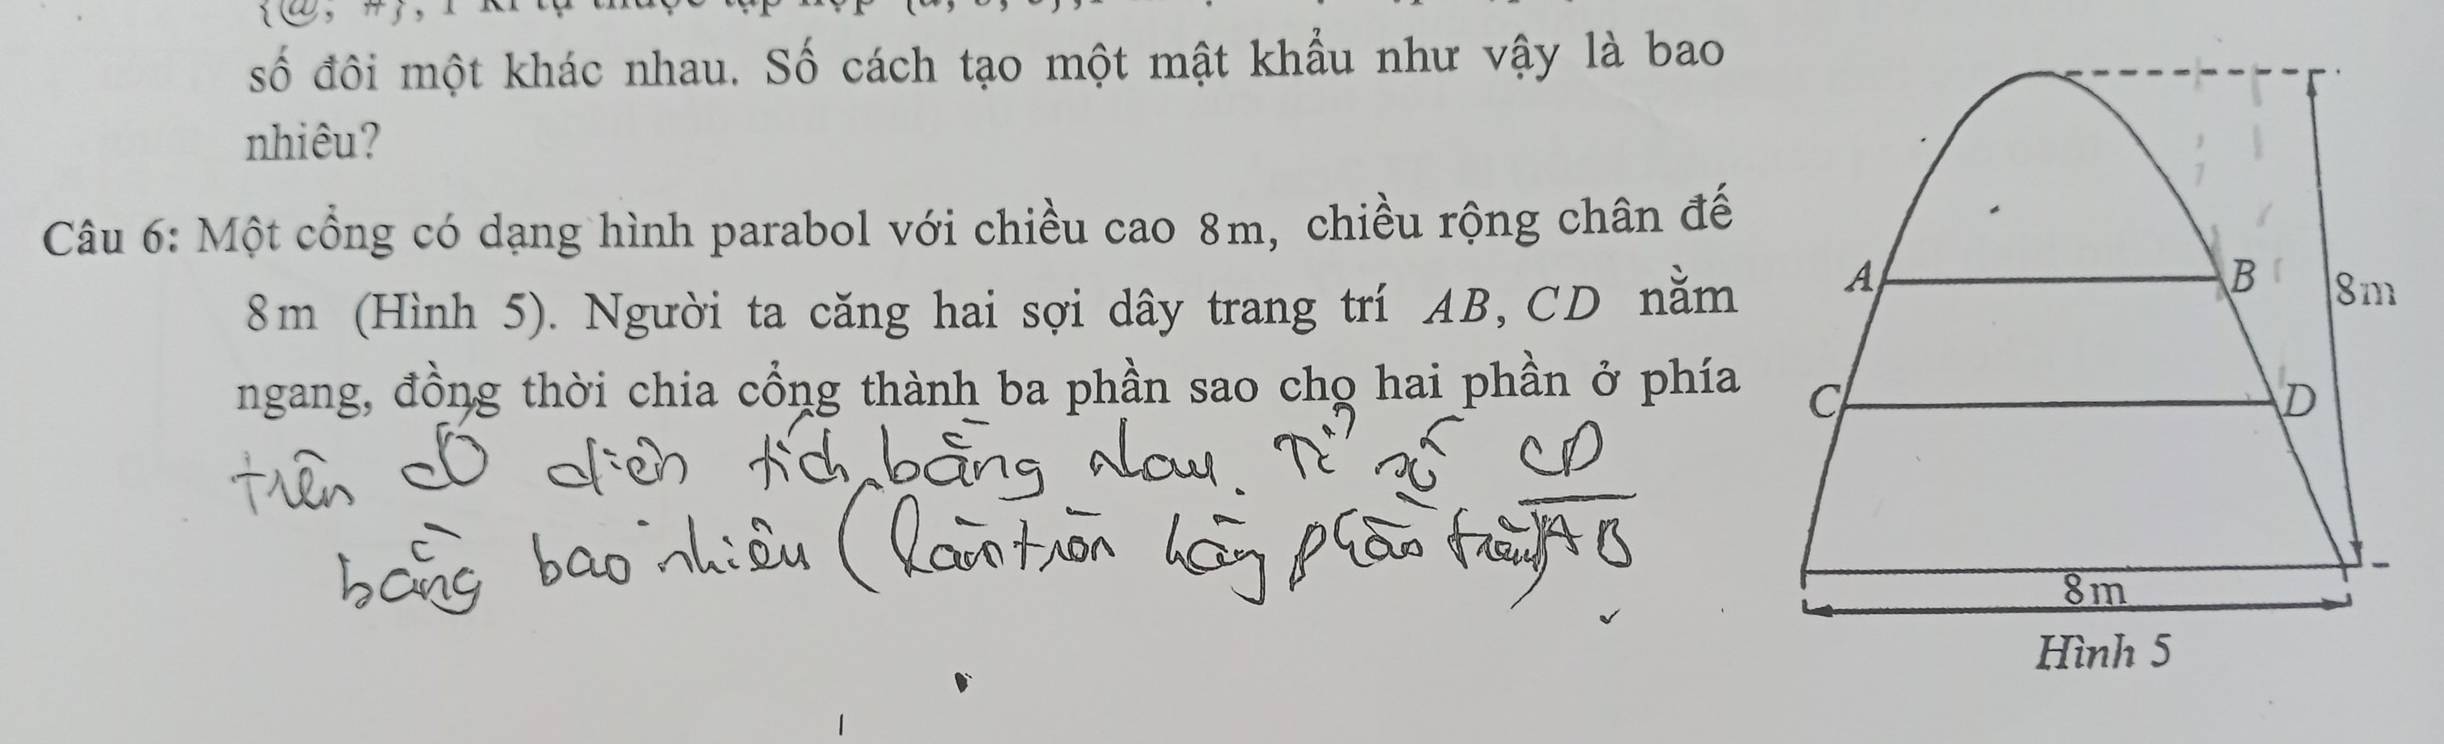 số đôi một khác nhau. Số cách tạo một mật khẩu như vậy là bao
nhiêu?
Câu 6: Một cổng có dạng hình parabol với chiều cao 8m, chiều rộng chân đế
8m (Hình 5). Người ta căng hai sợi dây trang trí AB, CD nằm
ngang, đồng thời chia cổng thành ba phần sao cho hai phần ở phía
trên có diện tích bằng nhau. Tỉ số CD
bằng bao nhiêu (làm tròn hàng phần trăm) AB
A
B
8m
C
D
8m
Hình 5